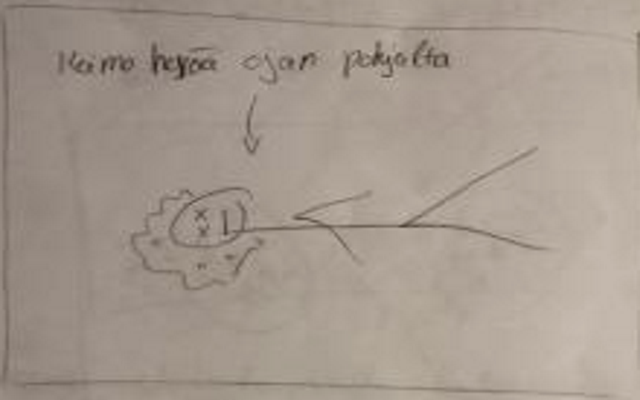 Kamo herää ojan pohjalta